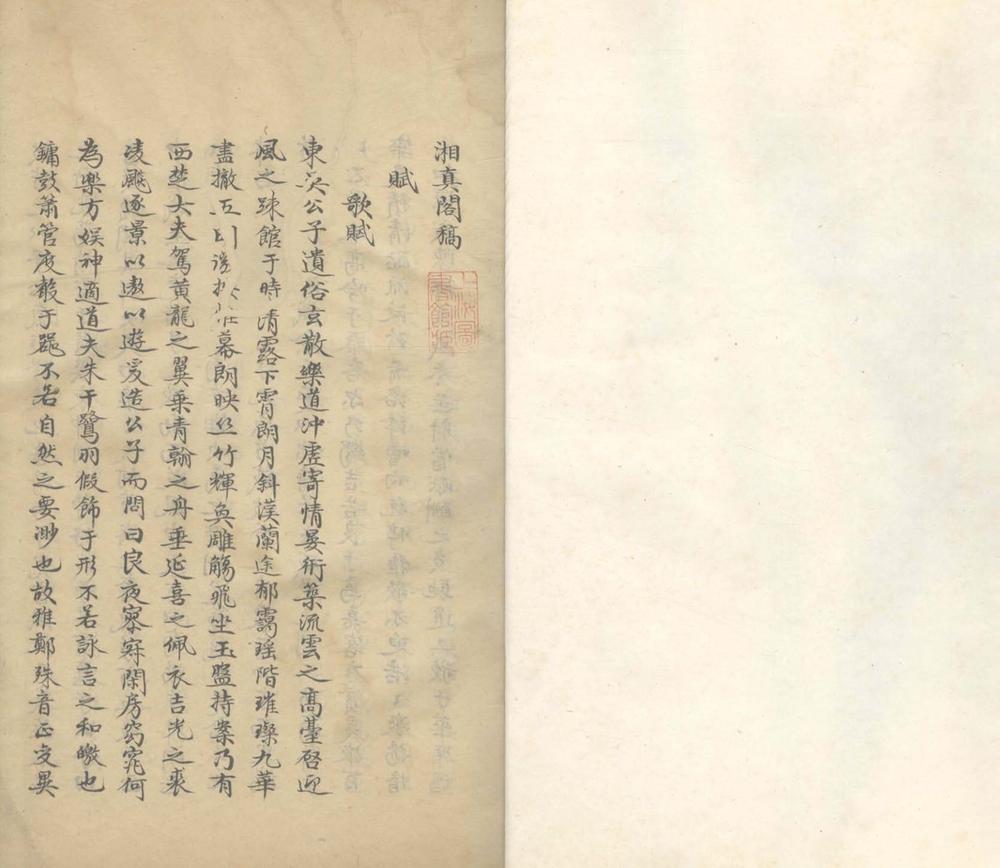 湘真閣稿
賦
歌賦
東 公子遺俗玄散樂道沖虛寄情晏衎築流雲之髙臺啓迎
風之踈館于時清露下霄朗月斜漢蘭途郁靄瑶階璀璨九華
盡撤 幕朗映丝竹輝奐雕觴飛坐玉盤持案乃有
西楚大夫駕黃龍之翼乗青翰之舟垂延喜之佩衣吉光之裘
凌飈逐景以遨以遊爰造公子而問曰良夜寥寂閑房窈窕何
為樂方娱神適道夫朱干鷺羽假飾于形不若詠言之和暢也
鏞鼓簫管度散于器不若自然之要渺也故雅鄭殊音正变異
上海圖書館藏